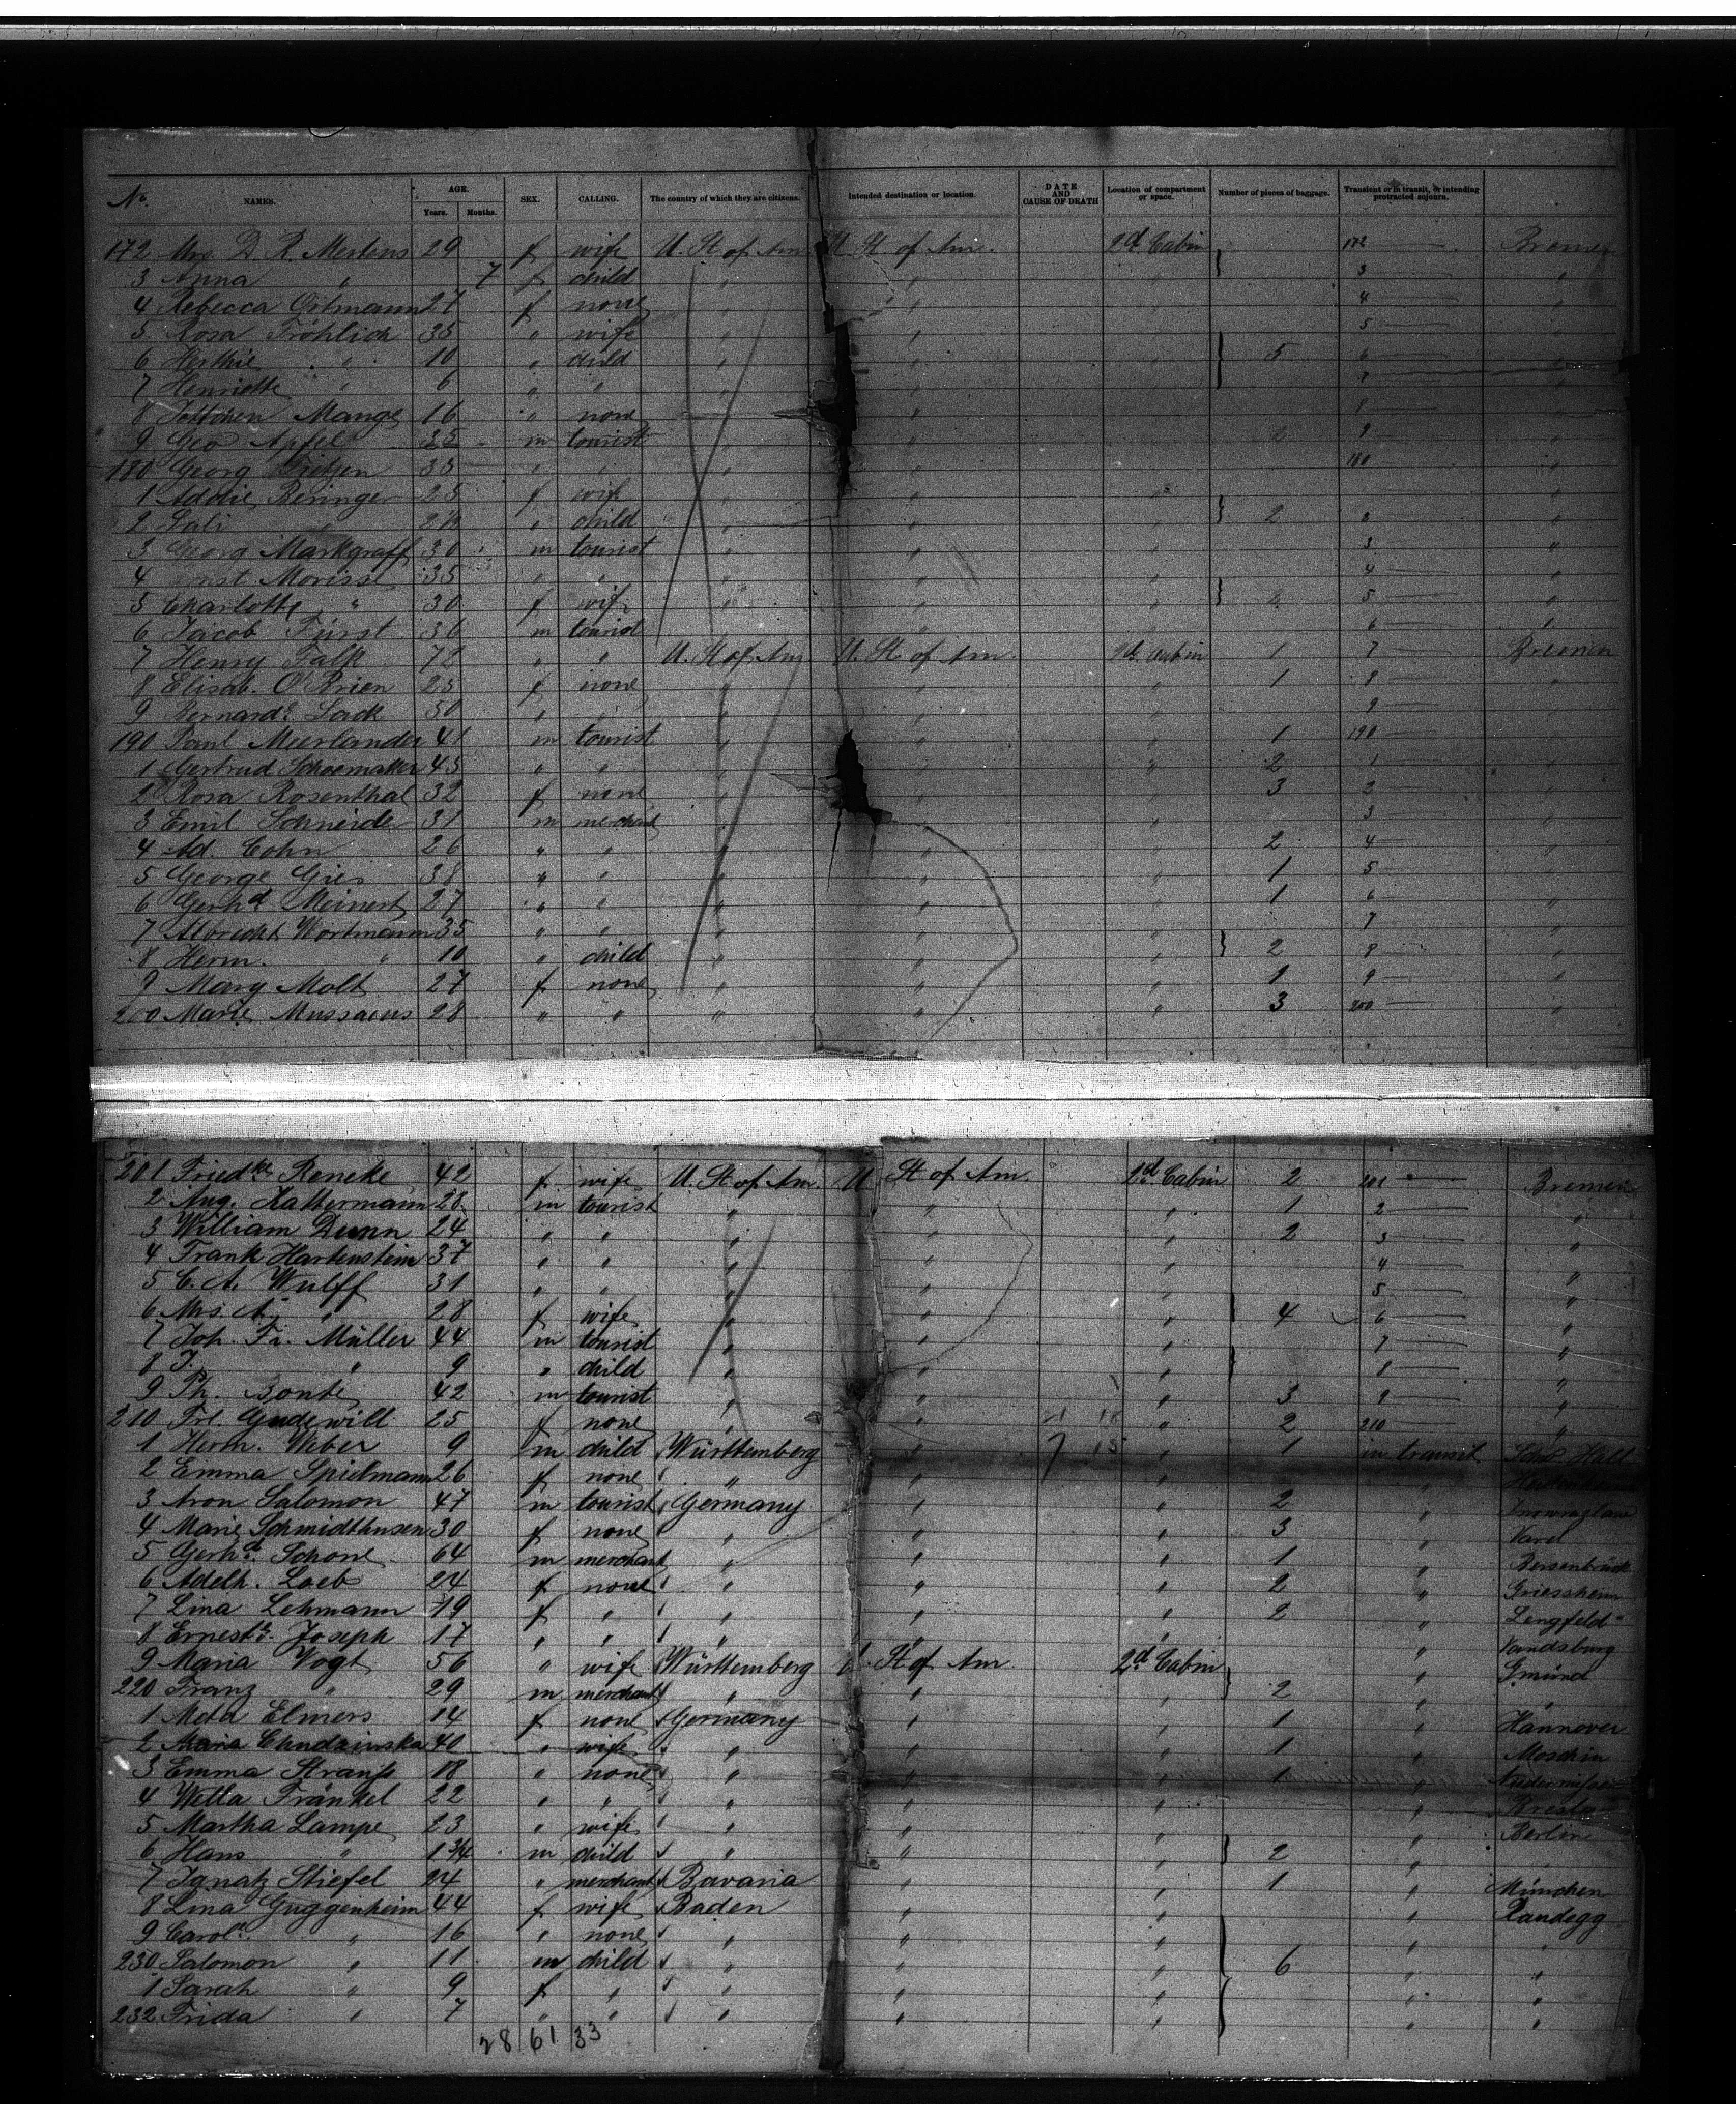 No. NAMES. AGE. Years. Months. SEX. CALLING. The country of which they are citizens. Intended destination or location. DATE AND CAUSE OF DEATH Location of compartment or space. Number of pieces of baggage. Transient or in transit, or intending protracted sojourn.
172 Mrs. D. R. Mertens 29 f wife U. St of Am U. St of Am. 2d Cabin 172 Bremen
3 Anna " 7 f child " " " 3 "
4 Rebecca Ortmann 27 f none " " " 4 "
5 Rosa Fröhlich 35 " wife " " " 5 "
6 " 10 " child " " " 5 6 "
7 Henriette " 6 " " " " " 7 "
8 Mange 16 " none " " " 8 "
9 Geo Apfel 35 m tourist " " " 2 9 "
180 Georg 35 " " " " " 180 "
1 Addie Beringer 25 f wife " " " "
2 Sali " child " " " 2 "
3 Georg Markgraff 30 m tourist " " " 3 "
4 Ernst 35 " " " " " 4 "
5 Charlotte " 30 f wife " " " 5 "
6 Jacob Fürst 36 m tourist " " " 6 "
7 Henry Falk 72 " " U. St of Am U. St. of Am. 2d Cabin 1 7 Bremen
8 Elisab. O'Brien 25 f none " " " 1 8 "
9 Sack 50 " " " " " 9 "
190 Paul Meerlander 41 m tourist " " " 1 190 "
1 Gertrud Schoemaker 45 " " " " " 2 1 "
2 Rosa Rosenthal 32 f none " " " 3 2 "
3 Emil Schneider 31 m merchant " " " 3 "
4 Ad. Cohn 26 " " " " " 2 4 "
5 George Gies 38 " " " " " 1 5 "
6 Gerhd. Meinert 27 " " " " " 1 6 "
7 Albrecht Wortmann 35 " " " " " 7 "
8 Herm. " 10 " child " " " 2 8 "
9 Mary Molt 27 f none " " " 1 9 "
200 Marie Mussaeus 28 " " " " " 3 200 "
201 Friedke Reneke 42 f wife U. St of Am. U St of Am 2d Cabin 2 201 Bremen
2 Aug. Kattermann 28 m tourist " " " 1 2 "
3 William Dunn 24 " " " " " 2 3 "
4 Frank Hartenstein 37 " " " " " 4 "
5 C. A. Wulff 31 " " " " " 5 "
6 Mrs. A. " 28 f wife " " " 4 6 "
7 Joh. Fr. Müller 44 m tourist " " " 7 "
8 " 9 " child " " " 8 "
9 Ph. Bonte 42 m tourist " " " 3 9 "
210 Frl. Gudewill 25 f none " " " 2 210 "
1 Herm. Weber 9 m child Württemberg " " 1 in transit Hall
2 Emma Spielmann 26 f none " " " "
3 Aron Salomon 47 m tourist Germany " " 2 " Inowraglaw
4 Marie Schmidthusen 30 f none " " " 3 " Varel
5 Gerhd. Schone 64 m merchant " " " 1 " Bersenbrück
6 Adelh. Loeb 24 f none " " " 2 " Griessheim
7 Lina Lehmann 19 f " " " " 2 " Lengfeld
8 Joseph 17 " " " " " Vandsburg
9 Maria Vogt 56 " wife Württemberg U. St of Am. 2d Cabin " Gmünd
220 Franz " 29 m merchant " " " 2 " "
1 Meta Elmers 14 f none Germany " " 1 " Hannover
2 Maria Chudzinska 40 " wife " " " 1 " Moschin
3 Emma Strauss 18 " none " " " 1 "
4 Wella Fränkel 22 " " " " " " Breslau
5 Martha Lampe 23 " wife " " " " Berlin
6 Hans " 1 3/4 m child " " " 2 " "
7 Ignatz Stiefel 24 " merchant Bavaria " " 1 " München
8 Lina Guggenheim 44 f wife Baden " " " Randegg
9 Caroln. " 16 " none " " " " "
230 Salomon " 11 m child " " " 6 " "
1 Sarah " 9 f " " " " " "
232 Frida " 7 " " " " " " "
28 61 33